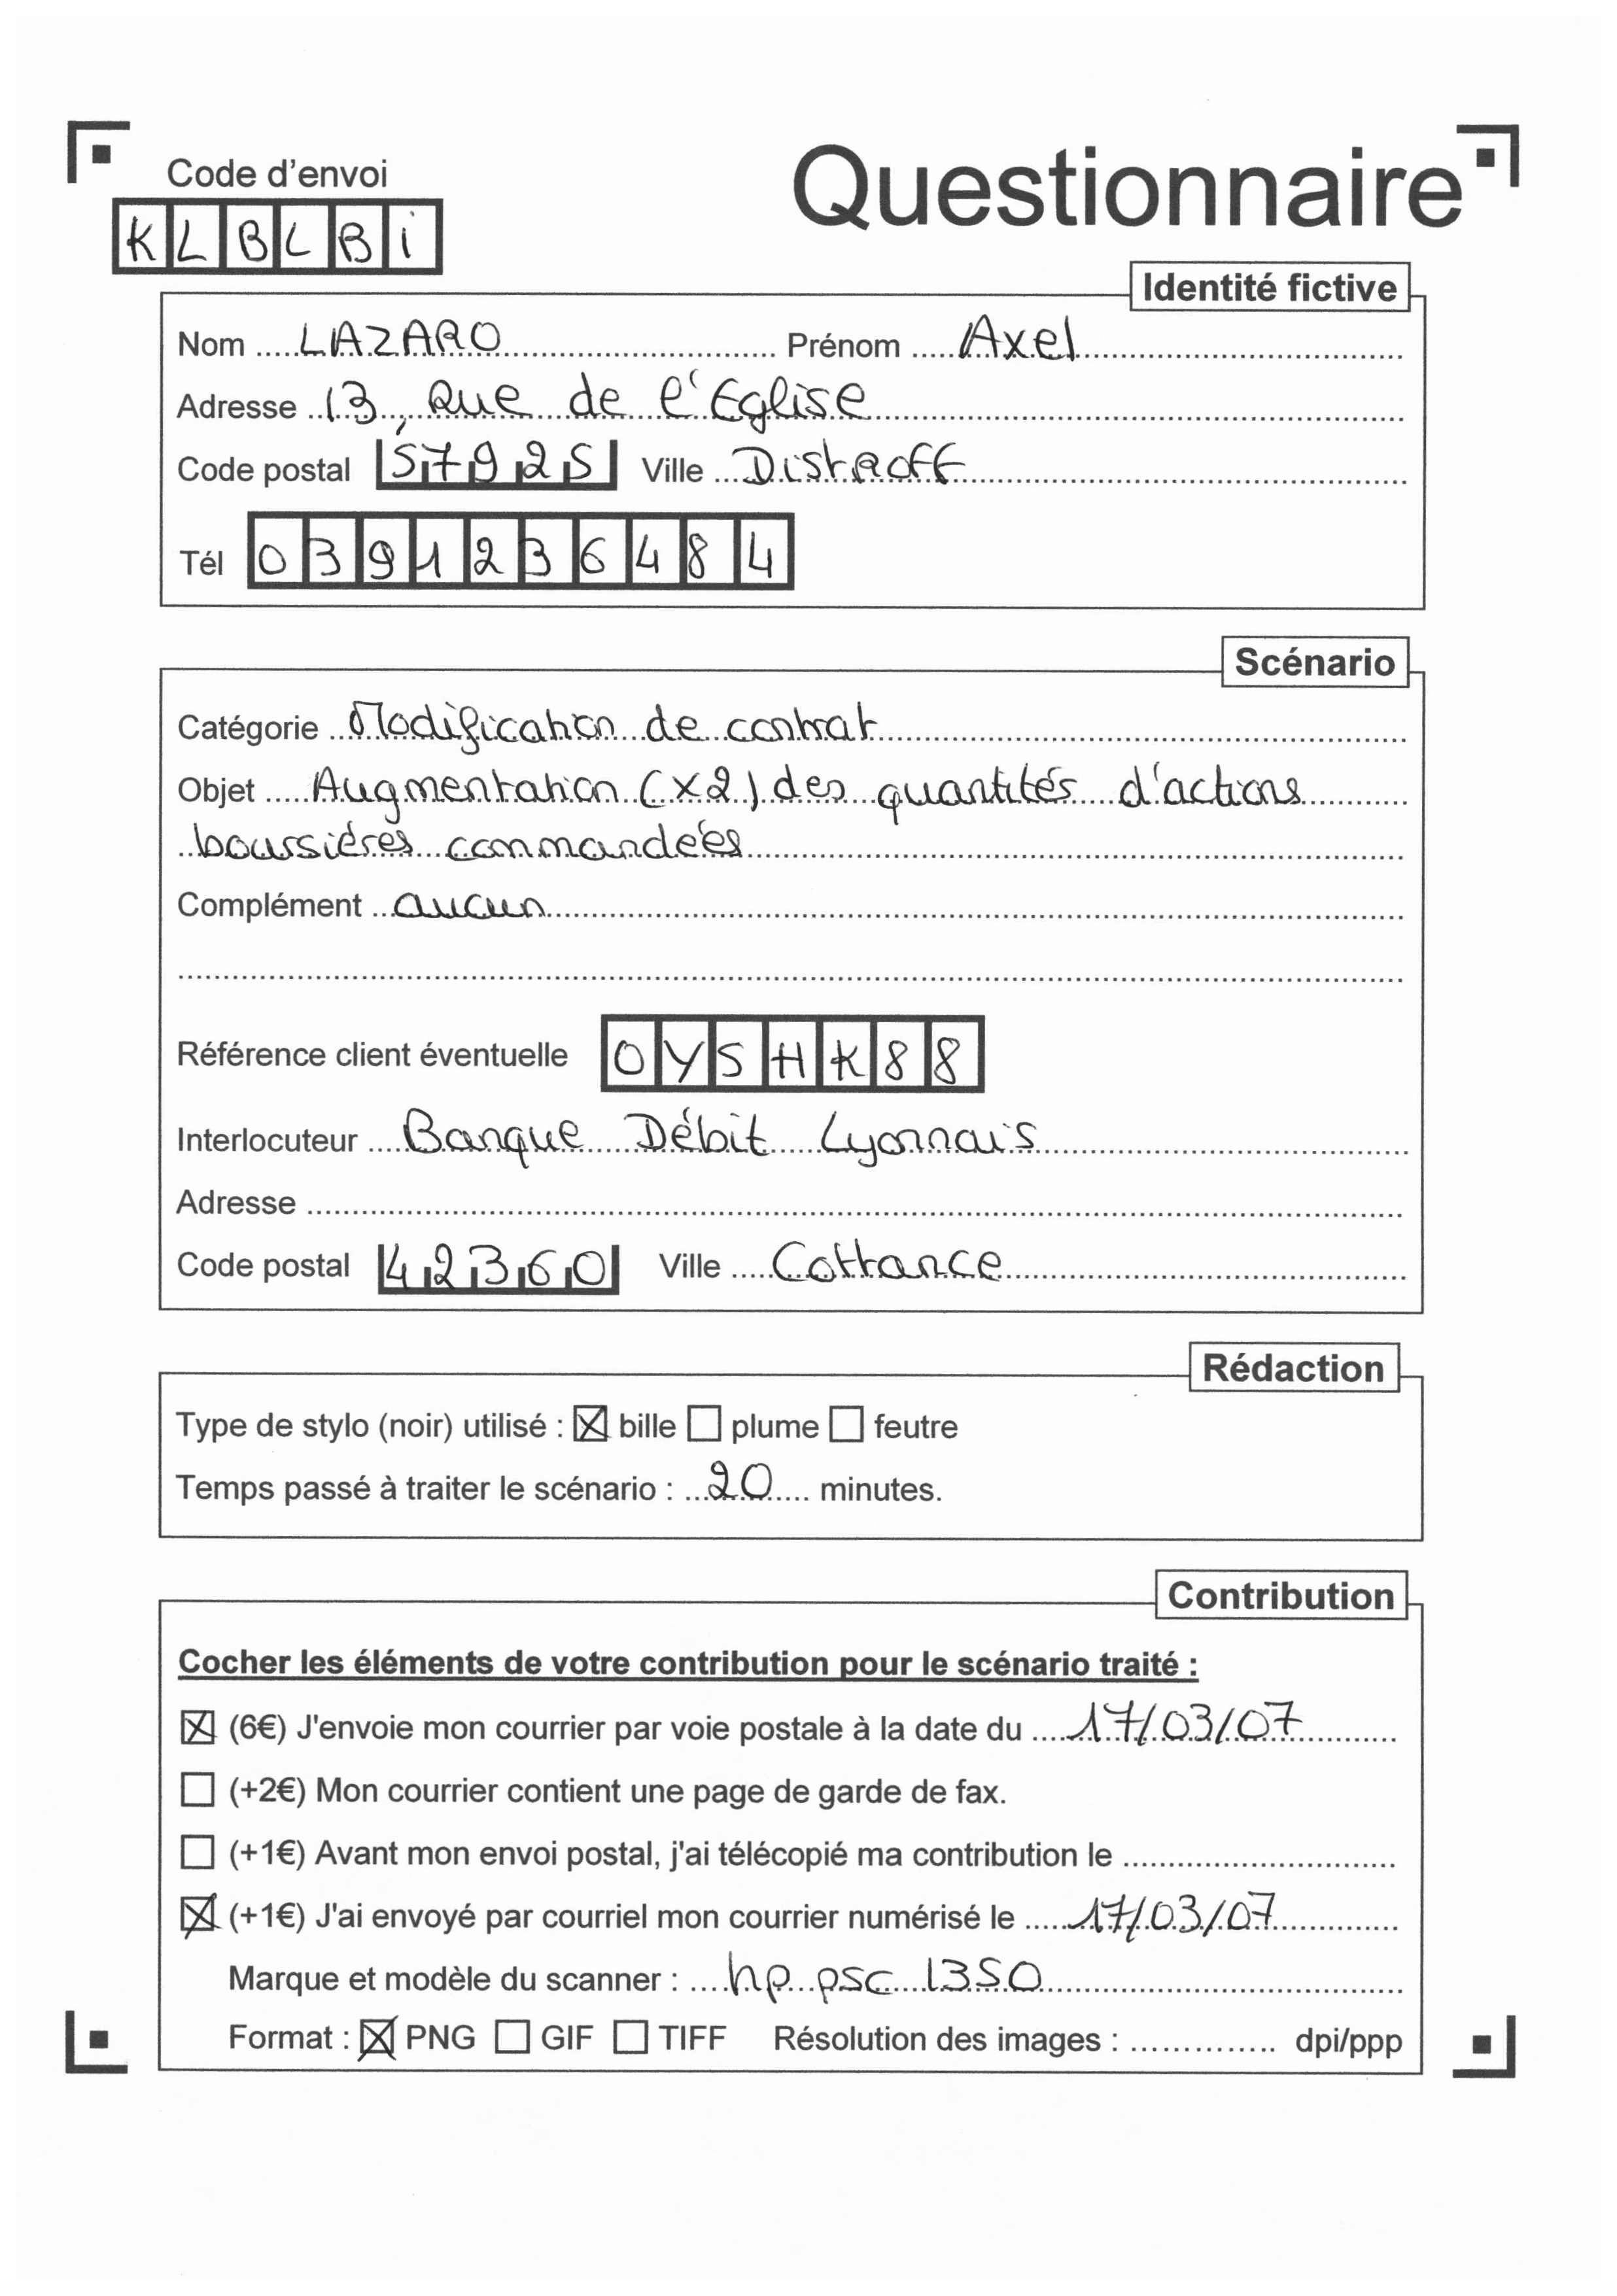 Code d'envoi
Questionnaire
KLBLBi
Identité fictive
Nom LAZARO Prénom Axel
Adresse 13, Rue de l'Eglise
Code postal 57925 Ville Distroff
Tél 0391236484
Scénario
Catégorie Modification de contrat
Objet Augmentation (x2) des quantités d'actions
boussières commandées
Complément aucun
Référence client éventuelle OYSHK88
Interlocuteur Banque Débit Lyonnais
Adresse
Code postal 42360 Ville Cottance
Rédaction
Type de stylo (noir) utilisé : ☒ bille ☐ plume ☐ feutre
Temps passé à traiter le scénario : 20 minutes.
Contribution
Cocher les éléments de votre contribution pour le scénario traité :
☒ (6€) J'envoie mon courrier par voie postale à la date du 17/03/07
☐ (+2€) Mon courrier contient une page de garde de fax.
☐ (+1€) Avant mon envoi postal, j'ai télécopié ma contribution le
☒ (+1€) J'ai envoyé par courriel mon courrier numérisé le 17/03/07
Marque et modèle du scanner : hp psc 1350
Format : ☒ PNG ☐ GIF ☐ TIFF Résolution des images : dpi/ppp